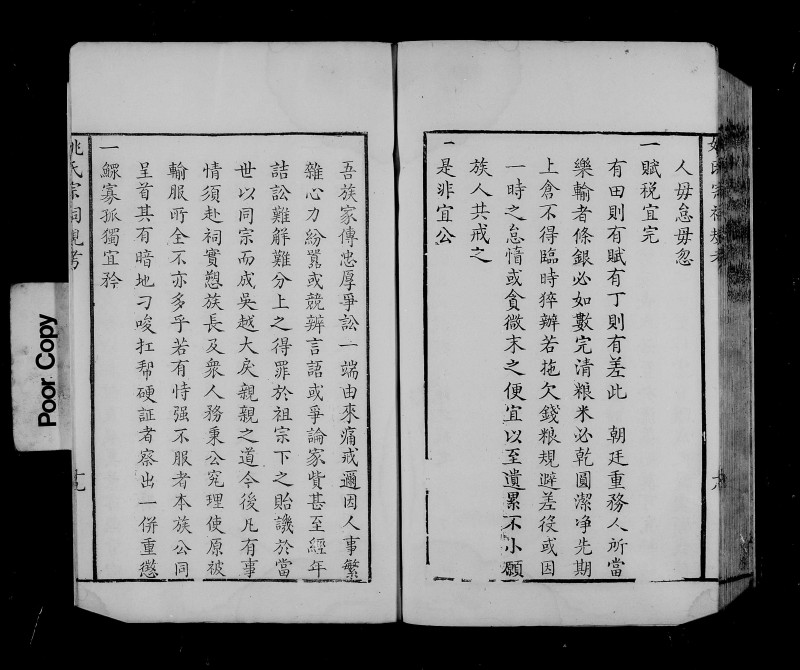 人毋怠毋忽
一賦税宜完
有田則有賦有丁則有差此 朝廷重務人所當
樂輸者條銀必如數完清粮米必乾圓潔净先期
上倉不得臨時猝辦若拖欠錢粮規避差役或因
一時之怠惰或貪微末之便宜以至遺累不小願
族人共戒之
一是非宜公
吾族家傳忠厚爭訟一端由來痛戒邇因人事繁
雜心力紛嚣或競辨言語或爭論家貲甚至經年
詰訟難解難分上之得罪於祖宗下之貽譏於當
世以同宗而成吳越大戾親親之道今後凡有事
情須赴祠實愬族長及衆人務秉公究理使原被
輸服所全不亦多乎若有恃强不服者本族公同
呈首其有暗地刁唆扛帮硬証者察出一併重懲
一鰥寡孤獨宜矜
姚氏宗祠規考
十九
Poor Copy